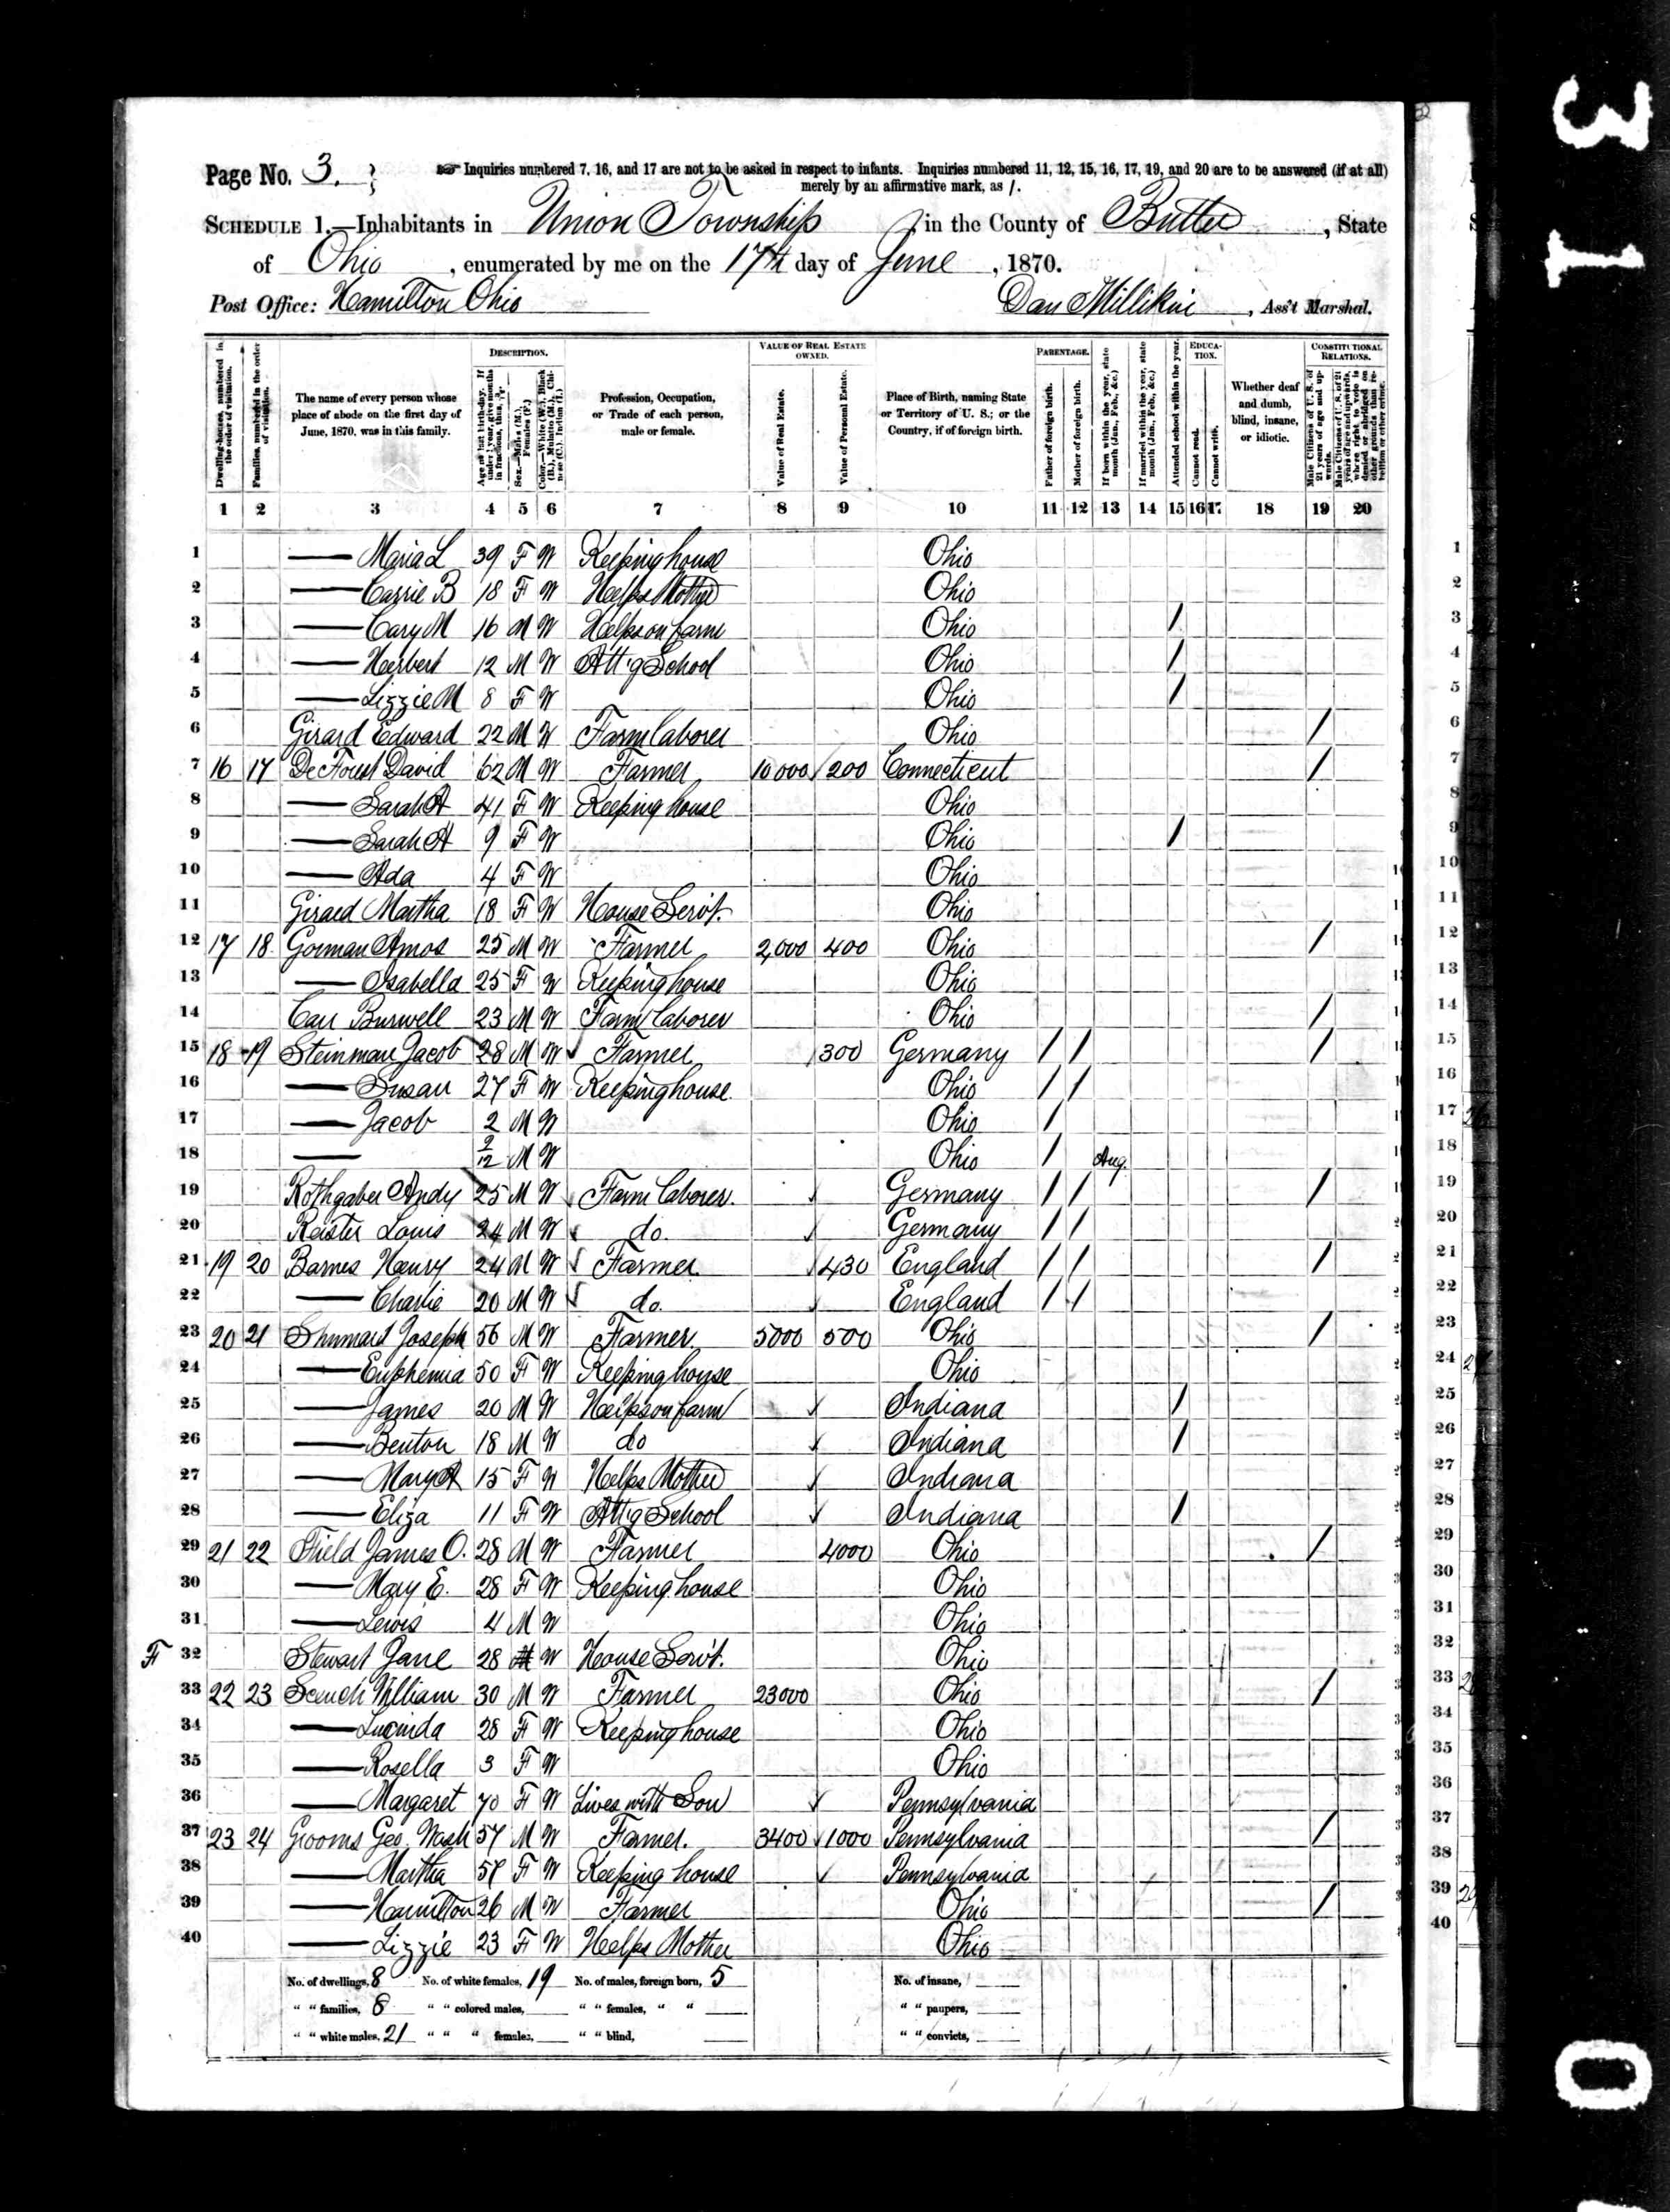 Page No. 3.
Inquiries numbered 7, 16, and 17 are not to be asked in respect to infants. Inquiries numbered 11, 12, 15, 16, 17, 19, and 20 are to be answered (if at all)
merely by an affirmative mark, as /.
SCHEDULE 1.—Inhabitants in Union Township, in the County of Butler, State
of Ohio, enumerated by me on the 17th day of June, 1870.
Post Office: Hamilton Ohio Dan Millikin, Ass't Marshal.
Dwelling-houses, numbered in the order of visitation.
Families, numbered in the order of visitation.
The name of every person whose place of abode on the first day of June, 1870, was in this family.
DESCRIPTION.
Age at last birth-day. If under 1 year, give months in fractions, thus, 3/12.
Sex.—Males (M.), Females (F.)
Color.—White (W.), Black (B.), Mulatto (M.), Chinese (C.), Indian (I.)
Profession, Occupation, or Trade of each person, male or female.
VALUE OF REAL ESTATE OWNED.
Value of Real Estate.
Value of Personal Estate.
Place of Birth, naming State or Territory of U. S.; or the Country, if of foreign birth.
PARENTAGE.
Father of foreign birth.
Mother of foreign birth.
If born within the year, state month (Jan., Feb., &c.)
If married within the year, state month (Jan., Feb., &c.)
Attended school within the year.
EDUCATION.
Cannot read.
Cannot write.
Whether deaf and dumb, blind, insane, or idiotic.
CONSTITUTIONAL RELATIONS.
Male Citizens of U. S. of 21 years of age and upwards.
Male Citizens of U. S. of 21 years of age and upwards, where right to vote is denied or abridged on other grounds than rebellion or other crime.
1 2 3 4 5 6 7 8 9 10 11 12 13 14 15 16 17 18 19 20
1 — Maria L 39 F W Keeping house Ohio
2 — Carrie B 18 F W Helps Mother Ohio
3 — Cary M 16 M W Helps on farm Ohio /
4 — Herbert 12 M W Att'g School Ohio /
5 — Lizzie M 8 F W Ohio /
6 Girard Edward 22 M W Farm laborer Ohio /
7 16 17 DeForest David 62 M W Farmer 10000 / 200 Connecticut /
8 — Sarah A 41 F W Keeping house Ohio
9 — Sarah A 9 F W Ohio /
10 — Ada 4 F W Ohio
11 Girard Martha 18 F W House Serv't. Ohio
12 17 18 Gorman Amos 25 M W Farmer 2,000 400 Ohio /
13 — Isabella 25 F W Keeping house Ohio
14 Carr Burwell 23 M W Farm laborer Ohio /
15 18 19 Steinman Jacob 28 M W Farmer 300 Germany / / /
16 — Susan 27 F W Keeping house. Ohio / /
17 — Jacob 2 M W Ohio /
18 — 9/12 M W Ohio / Aug.
19 Rothgaber Andy 25 M W Farm laborer. Germany / / /
20 Reister Louis 24 M W do. Germany / /
21 19 20 Barnes Henry 24 M W Farmer 430 England / / /
22 — Charlie 20 M W do. England / /
23 20 21 Shumard Joseph 56 M W Farmer 5000 500 Ohio /
24 — Euphemia 50 F W Keeping house Ohio
25 — James 20 M W Helps on farm Indiana /
26 — Benton 18 M W do Indiana /
27 — Mary A 15 F W Helps Mother Indiana
28 — Eliza 11 F W Att'g School Indiana /
29 21 22 Field James O. 28 M W Farmer 4000 Ohio /
30 — Mary E. 28 F W Keeping house Ohio
31 — Lewis 4 M W Ohio
F 32 Stewart Jane 28 W House Serv't. Ohio
33 22 23 William 30 M W Farmer 23000 Ohio /
34 — Lucinda 28 F W Keeping house Ohio
35 — Rosella 3 F W Ohio
36 — Margaret 70 F W Lives with Son Pennsylvania
37 23 24 Grooms Geo. Wash 57 M W Farmer. 3400 1000 Pennsylvania /
38 — Martha 57 F W Keeping house Pennsylvania
39 — Hamilton 26 M W Farmer Ohio /
40 — Lizzie 23 F W Helps Mother Ohio
No. of dwellings, 8 No. of white females, 19 No. of males, foreign born, 5 No. of insane,
" " families, 8 " " colored males, " " females, " " " " paupers,
" " white males, 21 " " " females, " " blind, " " convicts,
3 1
0